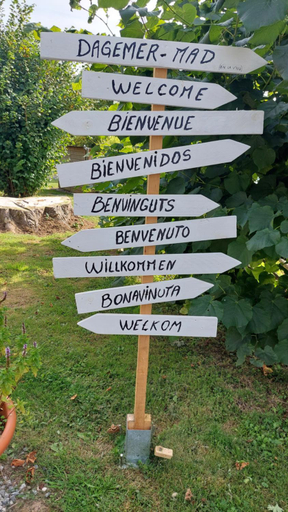 DAGEMER-MAD
WELCOME
BIENVENUE
BIENVENIDOS
BENVINGUTS
BENVENUTO
WILLKOMMEN
BONAVINUTA
WELKOM